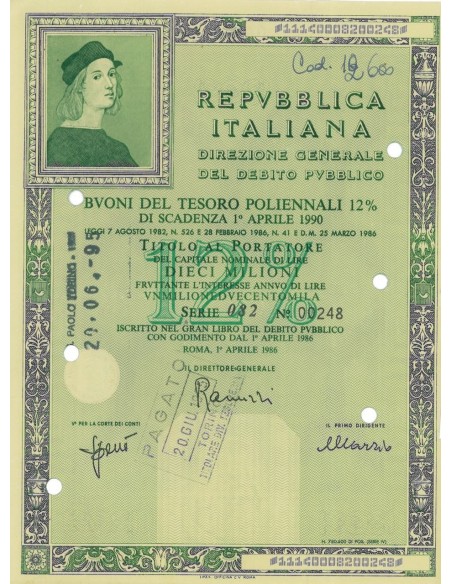 11140008200248
Cod. 12600
REPVBBLICA
ITALIANA
DIREZIONE GENERALE
DEL DEBITO PVBBLICO
BVONI DEL TESORO POLIENNALI 12%
DI SCADENZA 1° APRILE 1990
LEGGI 7 AGOSTO 1982, N. 526 E 28 FEBBRAIO 1986, N. 41 E D.M. 25 MARZO 1986
TITOLO AL PORTATORE
DEL CAPITALE NOMINALE DI LIRE
DIECI MILIONI
FRVTTANTE L'INTERESSE ANNVO DI LIRE
VNMILIONEDVECENTOMILA
12%
SERIE 082 N° 00248
ISCRITTO NEL GRAN LIBRO DEL DEBITO PVBBLICO
CON GODIMENTO DAL 1° APRILE 1986
ROMA, 1° APRILE 1986
S. PAOLO TORINO
20.06.-95
IL DIRETTORE GENERALE
PAGATO
20 GIU.
TORINO
V° PER LA CORTE DEI CONTI
IL PRIMO DIRIGENTE
11140008200248